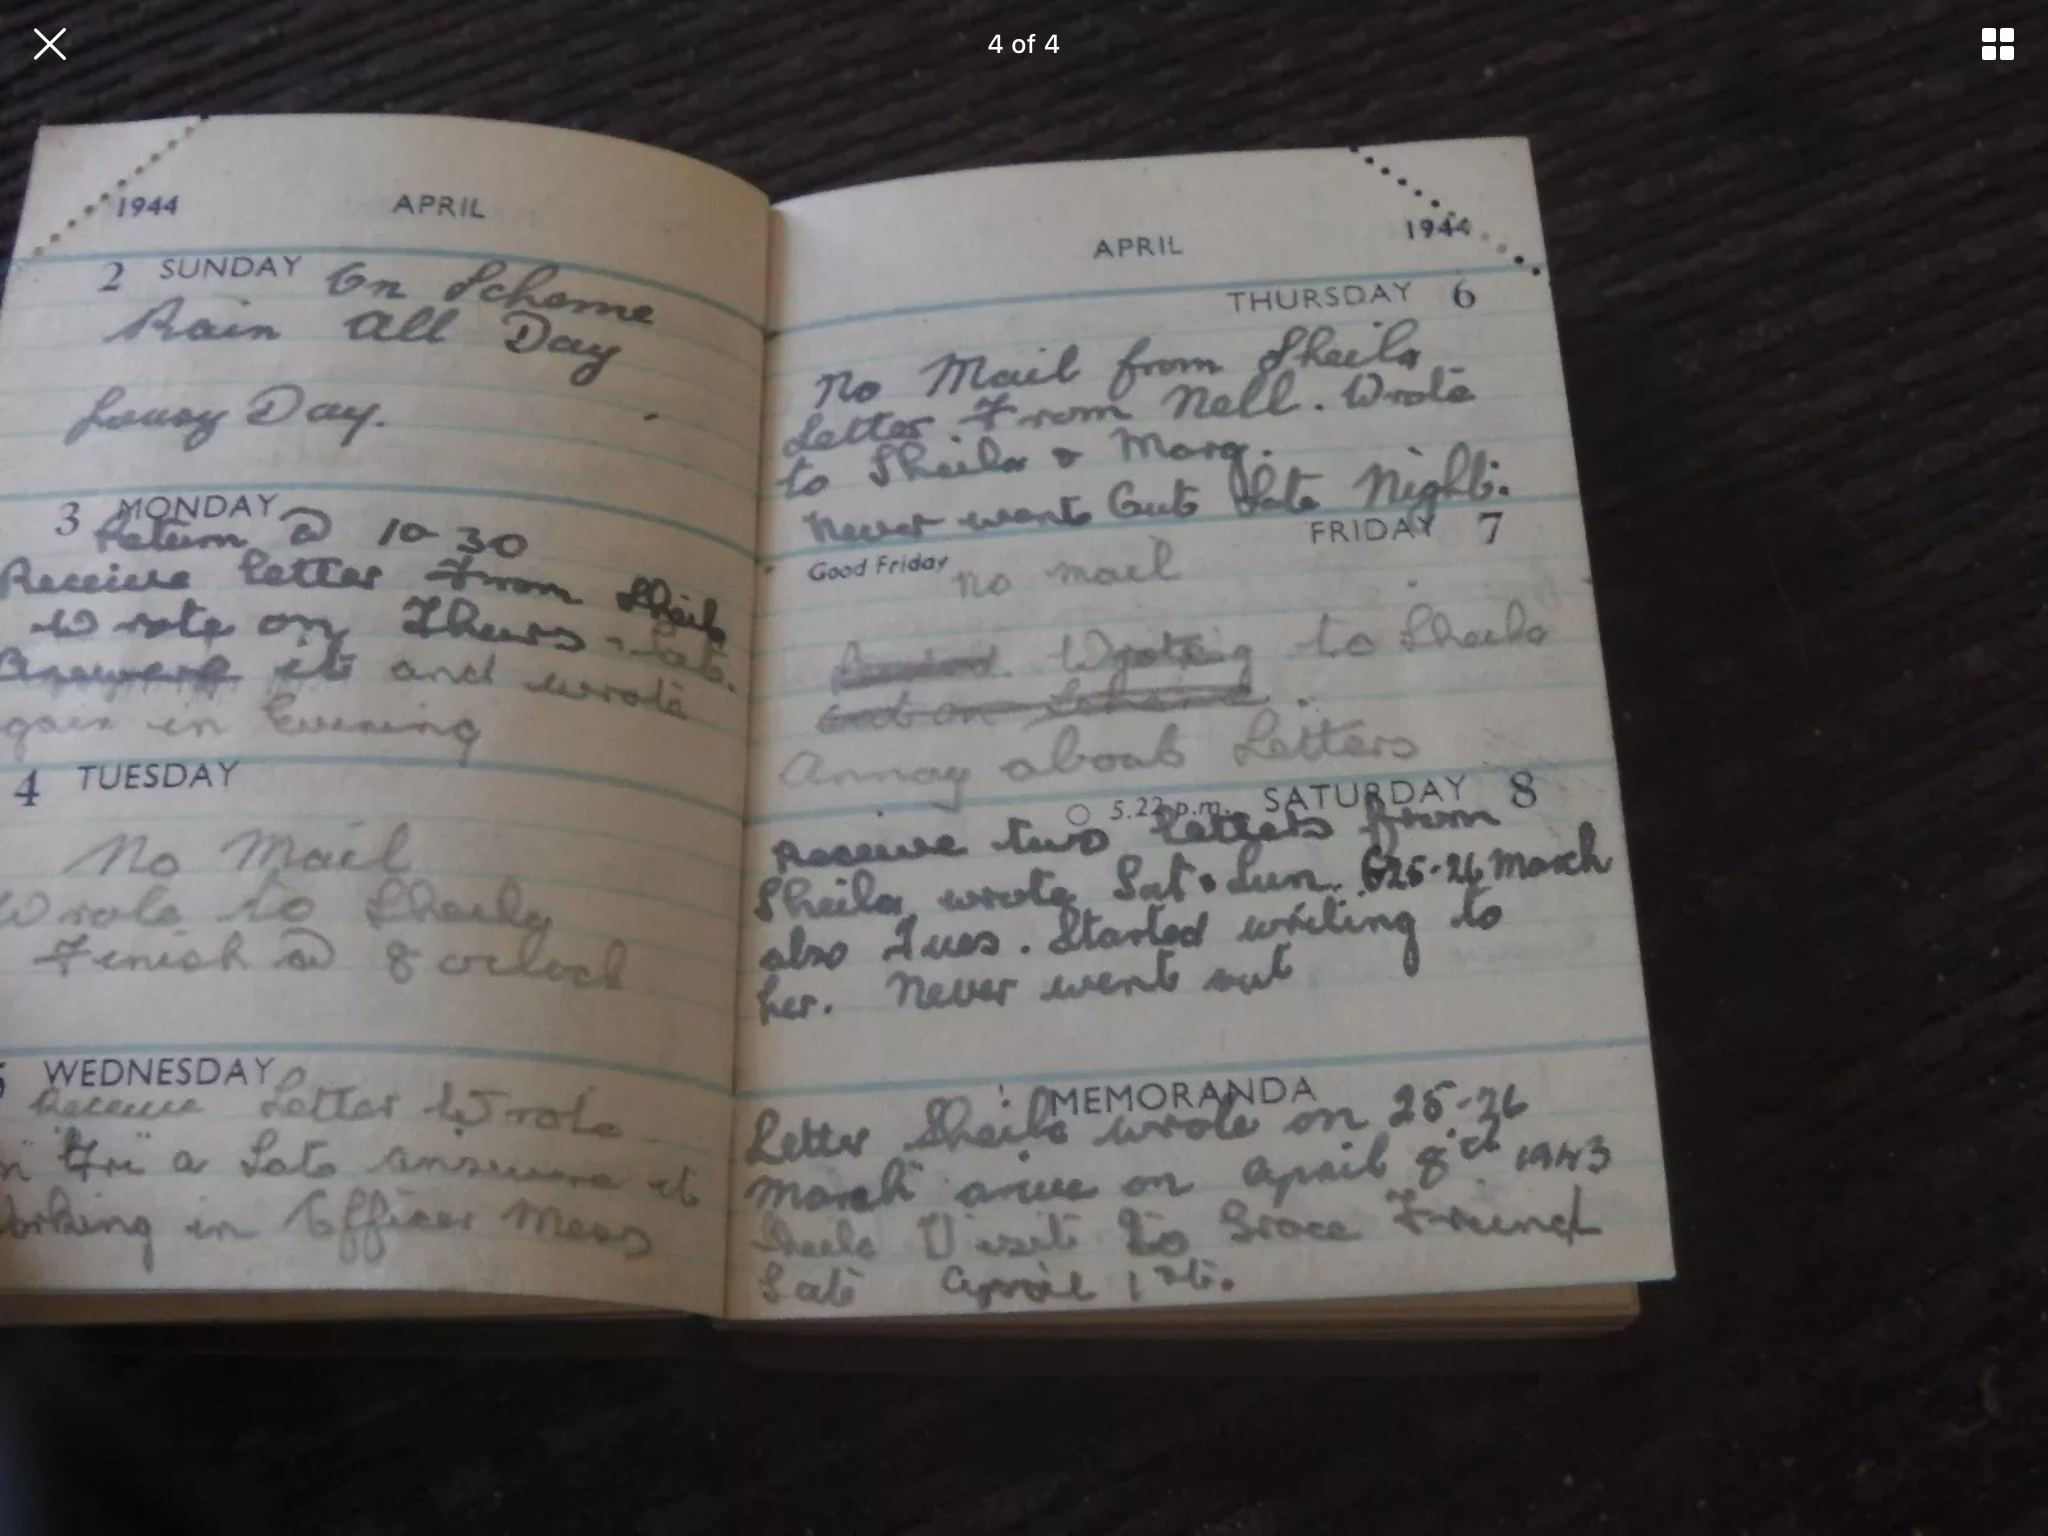 4 of 4
1944 APRIL
2 SUNDAY On Scheme
Rain all Day
Lousy Day.
3 MONDAY
Return @ 10-30
Receive Letter From Sheila
Wrote on Thurs - Late.
Answere it and wrote
gain in Evening
4 TUESDAY
No Mail
Wrote to Sheila
Finish @ 8 oclock
WEDNESDAY
Receive Letter Wrote
"Fri" a Late answere it
orking in Officer Mess
APRIL 1944
THURSDAY 6
No Mail from Sheila
Letter From Nell. Wrote
to Sheila & Marg.
Never went Out Late Night.
FRIDAY 7
Good Friday no mail
Writing to Sheila
out on Scheme.
Annoy about Letters
5.22 p.m. SATURDAY 8
Receive two Letters from
Sheila wrote Sat & Sun. 25-26 March
also Tues. Started writing to
her. Never went out
MEMORANDA
Letter Sheila wrote on 25-26
March arive on April 8th 1943
Sheila Visit to Grace Friend
Sat April 1st.